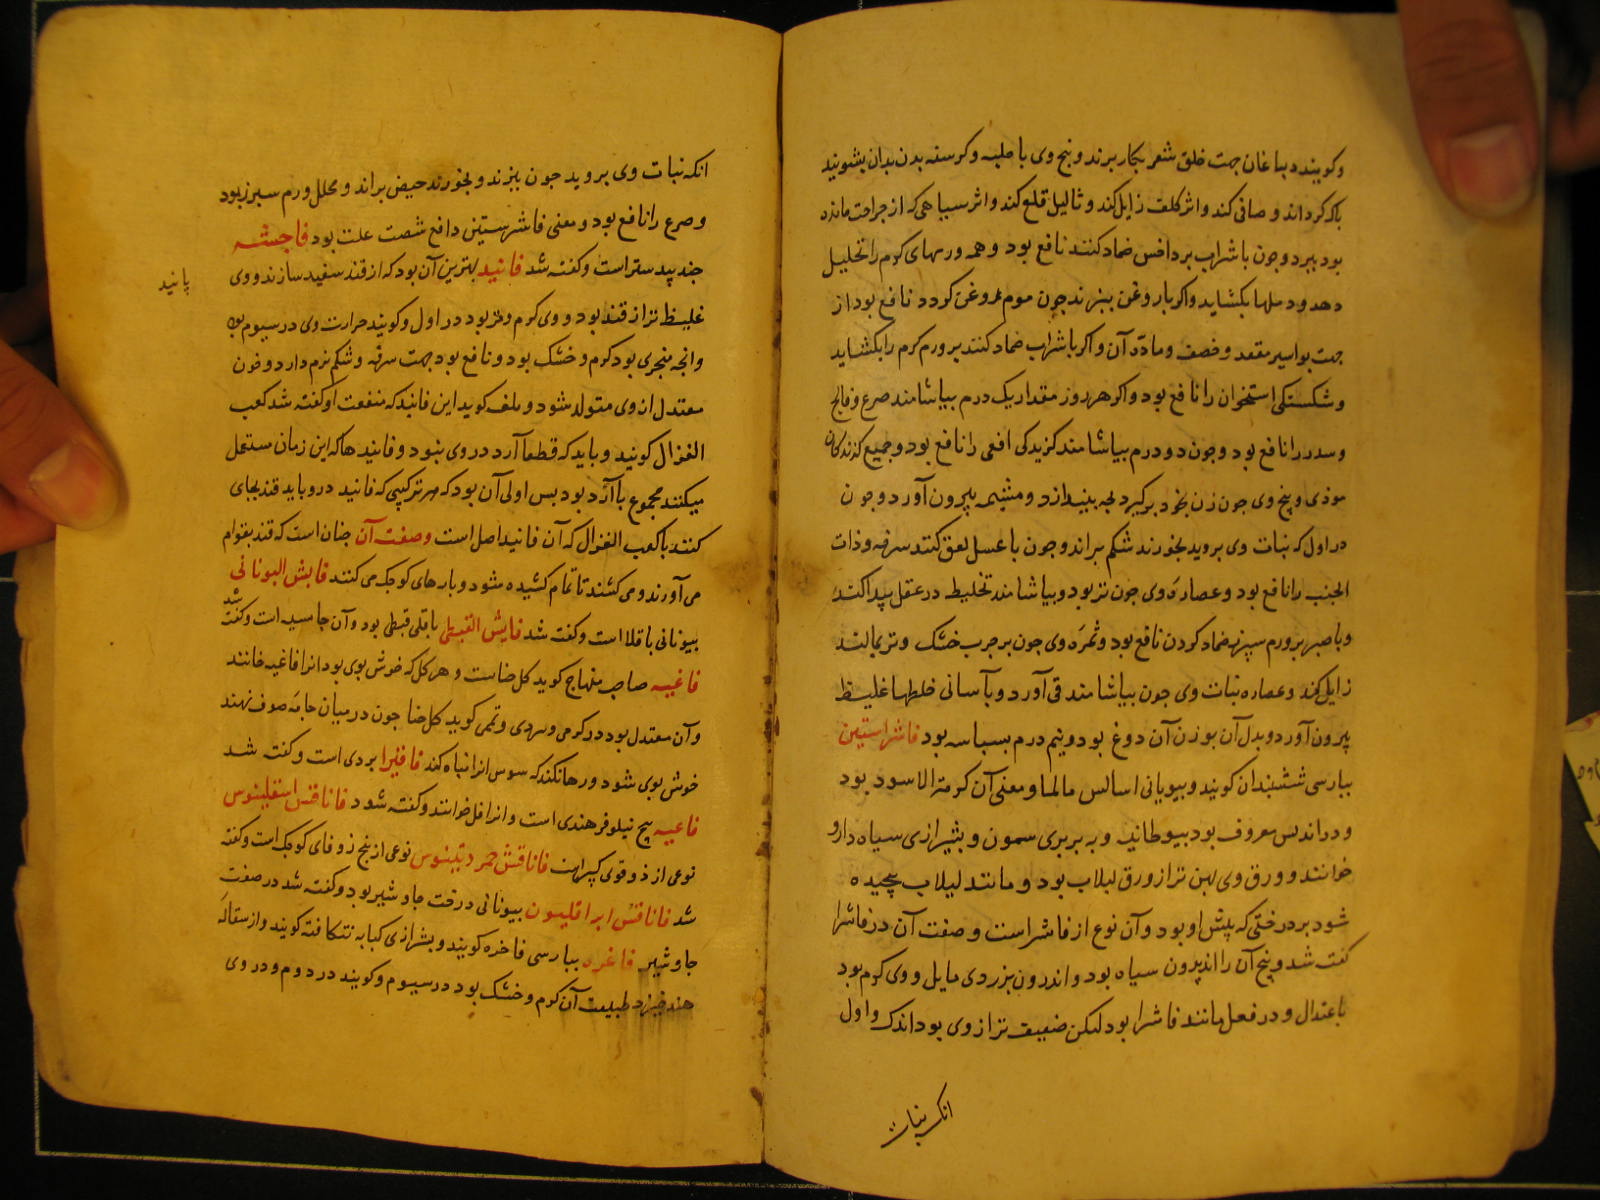 وکویند دباغان جهت خلق شعر بکار برند و بیخ وی با حلبه و کرسنه بدن بدان بشویند
پاک کرداند و صافی کند و اثر کلف زایل کند و ثالیل قلع کند و اثر سیاهی که از جراحت مانده
بود ببرد و چون با شراب بر داخس ضماد کنند نافع بود و همه ورمهای کرم را تحلیل
دهد و دملها بکشاید و اکر با روغن بپزند چون موم روغن کردد نافع بود از
جهت بواسیر مقعد و ماده آن و اکر با شراب ضماد کنند بر ورم کرم را بکشاید
و شکستکی استخوان را نافع بود و اکر هر روز مقدار یک درم بیاشامند صرع و فالج
و سدر را نافع بود و چون دو درم بیاشامند کزیدکی افعی را نافع بود و جمیع کزندکان
موذی و بیخ وی چون زن بخود برکیرد بچه بیندازد و مشیمه بیرون آورد و چون
در اول که نبات وی بروید بخورند شکم براند و چون با عسل لعق کنند سرفه و ذات
الجنب را نافع بود و عصاره وی چون تر بود و بیاشامند تخلیط در عقل پیدا کند
و با صبر بر ورم سپرز ضماد کردن نافع بود و ثمره وی چون بر جرب خشک و تر بمالند
زایل کند و عصاره نبات وی چون بیاشامند قی آورد و بآسانی خلطها غلیظ
بیرون آورد و بدل آن بوزن آن دوغ بود و نیم درم بسباسه بود فاشراستین
بپارسی ششبندان کویند و بیونانی اسالس مالما و معنی آن کرمة الاسود بود
و در اندلس معروف بود ببوطانیه و به بربری سمون و بشیرازی سیاه دارو
خوانند و ورق وی پهن تر از ورق لبلاب بود و مانند لبلاب پیچیده
شود بر درختی که پیش او بود و آن نوع از فاشراست و صفت آن در فاشرا
کفته شد و بیخ آن را اندرون سیاه بود و اندرون بزردی مایل و وی کرم بود
باعتدال و در فعل مانند فاشرا بود لیکن ضعیف تر از وی بود اندک و اول
انک نبات
انکه نبات وی بروید چون بپزند و بخورند حیض براند و محلل ورم سپرز بود
و صرع را نافع بود و معنی فاشرستین دافع شصت علت بود فاجشه
جند بیدستر است و کفته شد فانید بهترین آن بود که از قند سفید سازند و وی
پانید
غلیظ تر از قند بود و وی کرم و تر بود در اول و کویند حرارت وی در سیوم بود
و انچه سنجری بود کرم و خشک بود و نافع بود جهت سرفه و شکم نرم دارد و خون
معتدل از وی متولد شود و ملف کوید این فانید که منفعت او کفته شد کعب
الغزال کویند و باید که قطعا آرد در وی نبود و فانید ها که این زمان مستعمل
میکنند مجموع با آرد بود پس اولی آن بود که هر ترکیبی که فانید درو باید قند بجای
کنند یا کعب الغزال که آن فانید اصل است و صفت آن چنان است که قند بقوام
می آورند و می کشند تا تمام کشیده شود و پارهای کوچک می کنند فابش الیونانی
بیونانی باقلا است و کفته شد فابش القبطی باقلی قبطی بود و آن جامسیه است و کفته شد
فاغیه صاحب منهاج کوید کل حناست و هر کل که خوش بوی بود انرا فاغیه خوانند
و آن معتدل بود در کرمی و سردی و تمیمی کوید کل حنا چون در میان جامه صوف نهند
خوش بوی شود و رها نکند که سوس انرا تباه کند فافیرا بردی است و کفته شد
فاغیه بیخ نیلوفر هندی است و انرا فل خوانند و کفته شود فاناقس اسقلینوس
نوعی از ذوقوی کبیر است فاناقس خیرونیوس نوعی از بیخ زوفای کوچک است و کفته
شد فاناقس ابراقلیون بیونانی درخت جاوشیر بود و کفته شد در صفت
جاوشیر فاغره بپارسی فاخره کویند و بشیرازی کبابه شکافته کویند و از سقاله
هند خیزد طبیعت آن کرم و خشک بود در سیوم و کویند در دوم و در وی